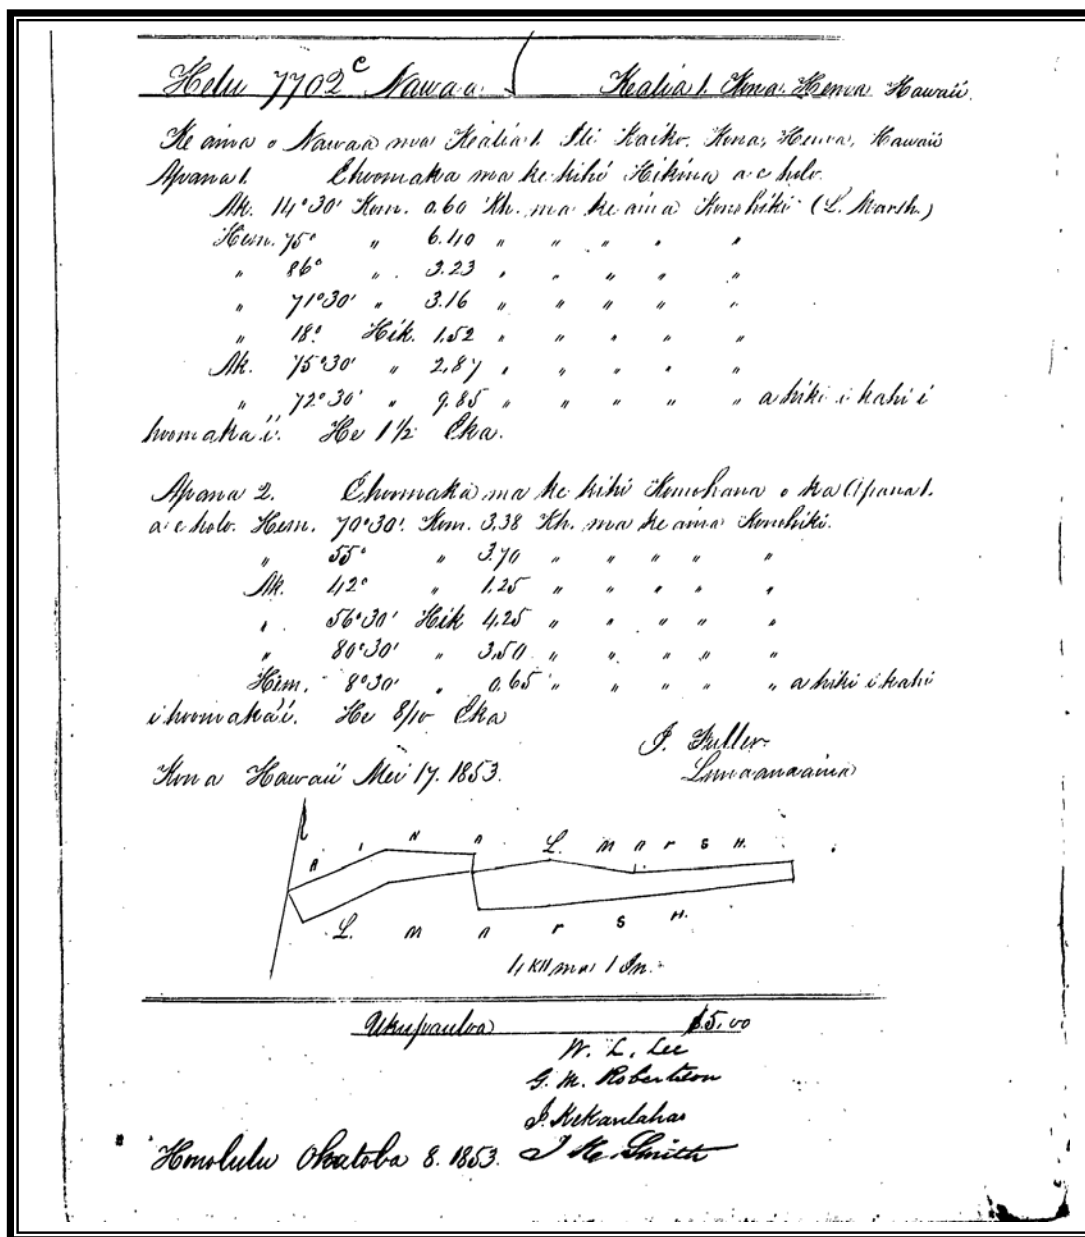 Helu 7702 c Nawaa. Kealia 1. Kona. Hema Hawaii.
Ke aina o Nawaa ma Kealia 1. Ili Kaiko. Kona, Hema, Hawaii
Apana 1. E hoomaka ma ke kihi Hikina a e holo.
Ak. 14°30' Kom. 0.60 Kh. ma ke aina Konohiki (L. Marsh.)
Hem. 75° " 6.40 " " " " "
" 86° " 3.23 " " " " "
" 71°30' " 3.16 " " " " "
" 18° Hik. 1.52 " " " " "
Ak. 75°30' " 2.87 " " " " "
" 72°30' " 9.85 " " " " " a hiki i kahi i
hoomaka'i. He 1 1/2 Eka.
Apana 2. E hoomaka ma ke kihi Komohana o ka Apana 1.
a e holo. Hem. 70°30'. Kom. 3.38 Kh. ma ke aina Konohiki.
" 55° " 3.70 " " " " "
Ak. 42° " 1.25 " " " " "
" 56°30' Hik 4.25 " " " " "
" 80°30' " 3.50 " " " " "
Hem. 8°30' " 0.65 " " " " " a hiki i kahi
i hoomaka'i. He 8/10 Eka
J. Fuller
Kona Hawaii Mei 17. 1853. Lunaanaaina
A I N A L. M A r S H.
L. M A r S H.
4 KH ma 1 In.
Ukupauloa $5.00
W. L. Lee
G. M. Robertson
J. Kekaulahao
Honolulu Okatoba 8. 1853. J H. Smith